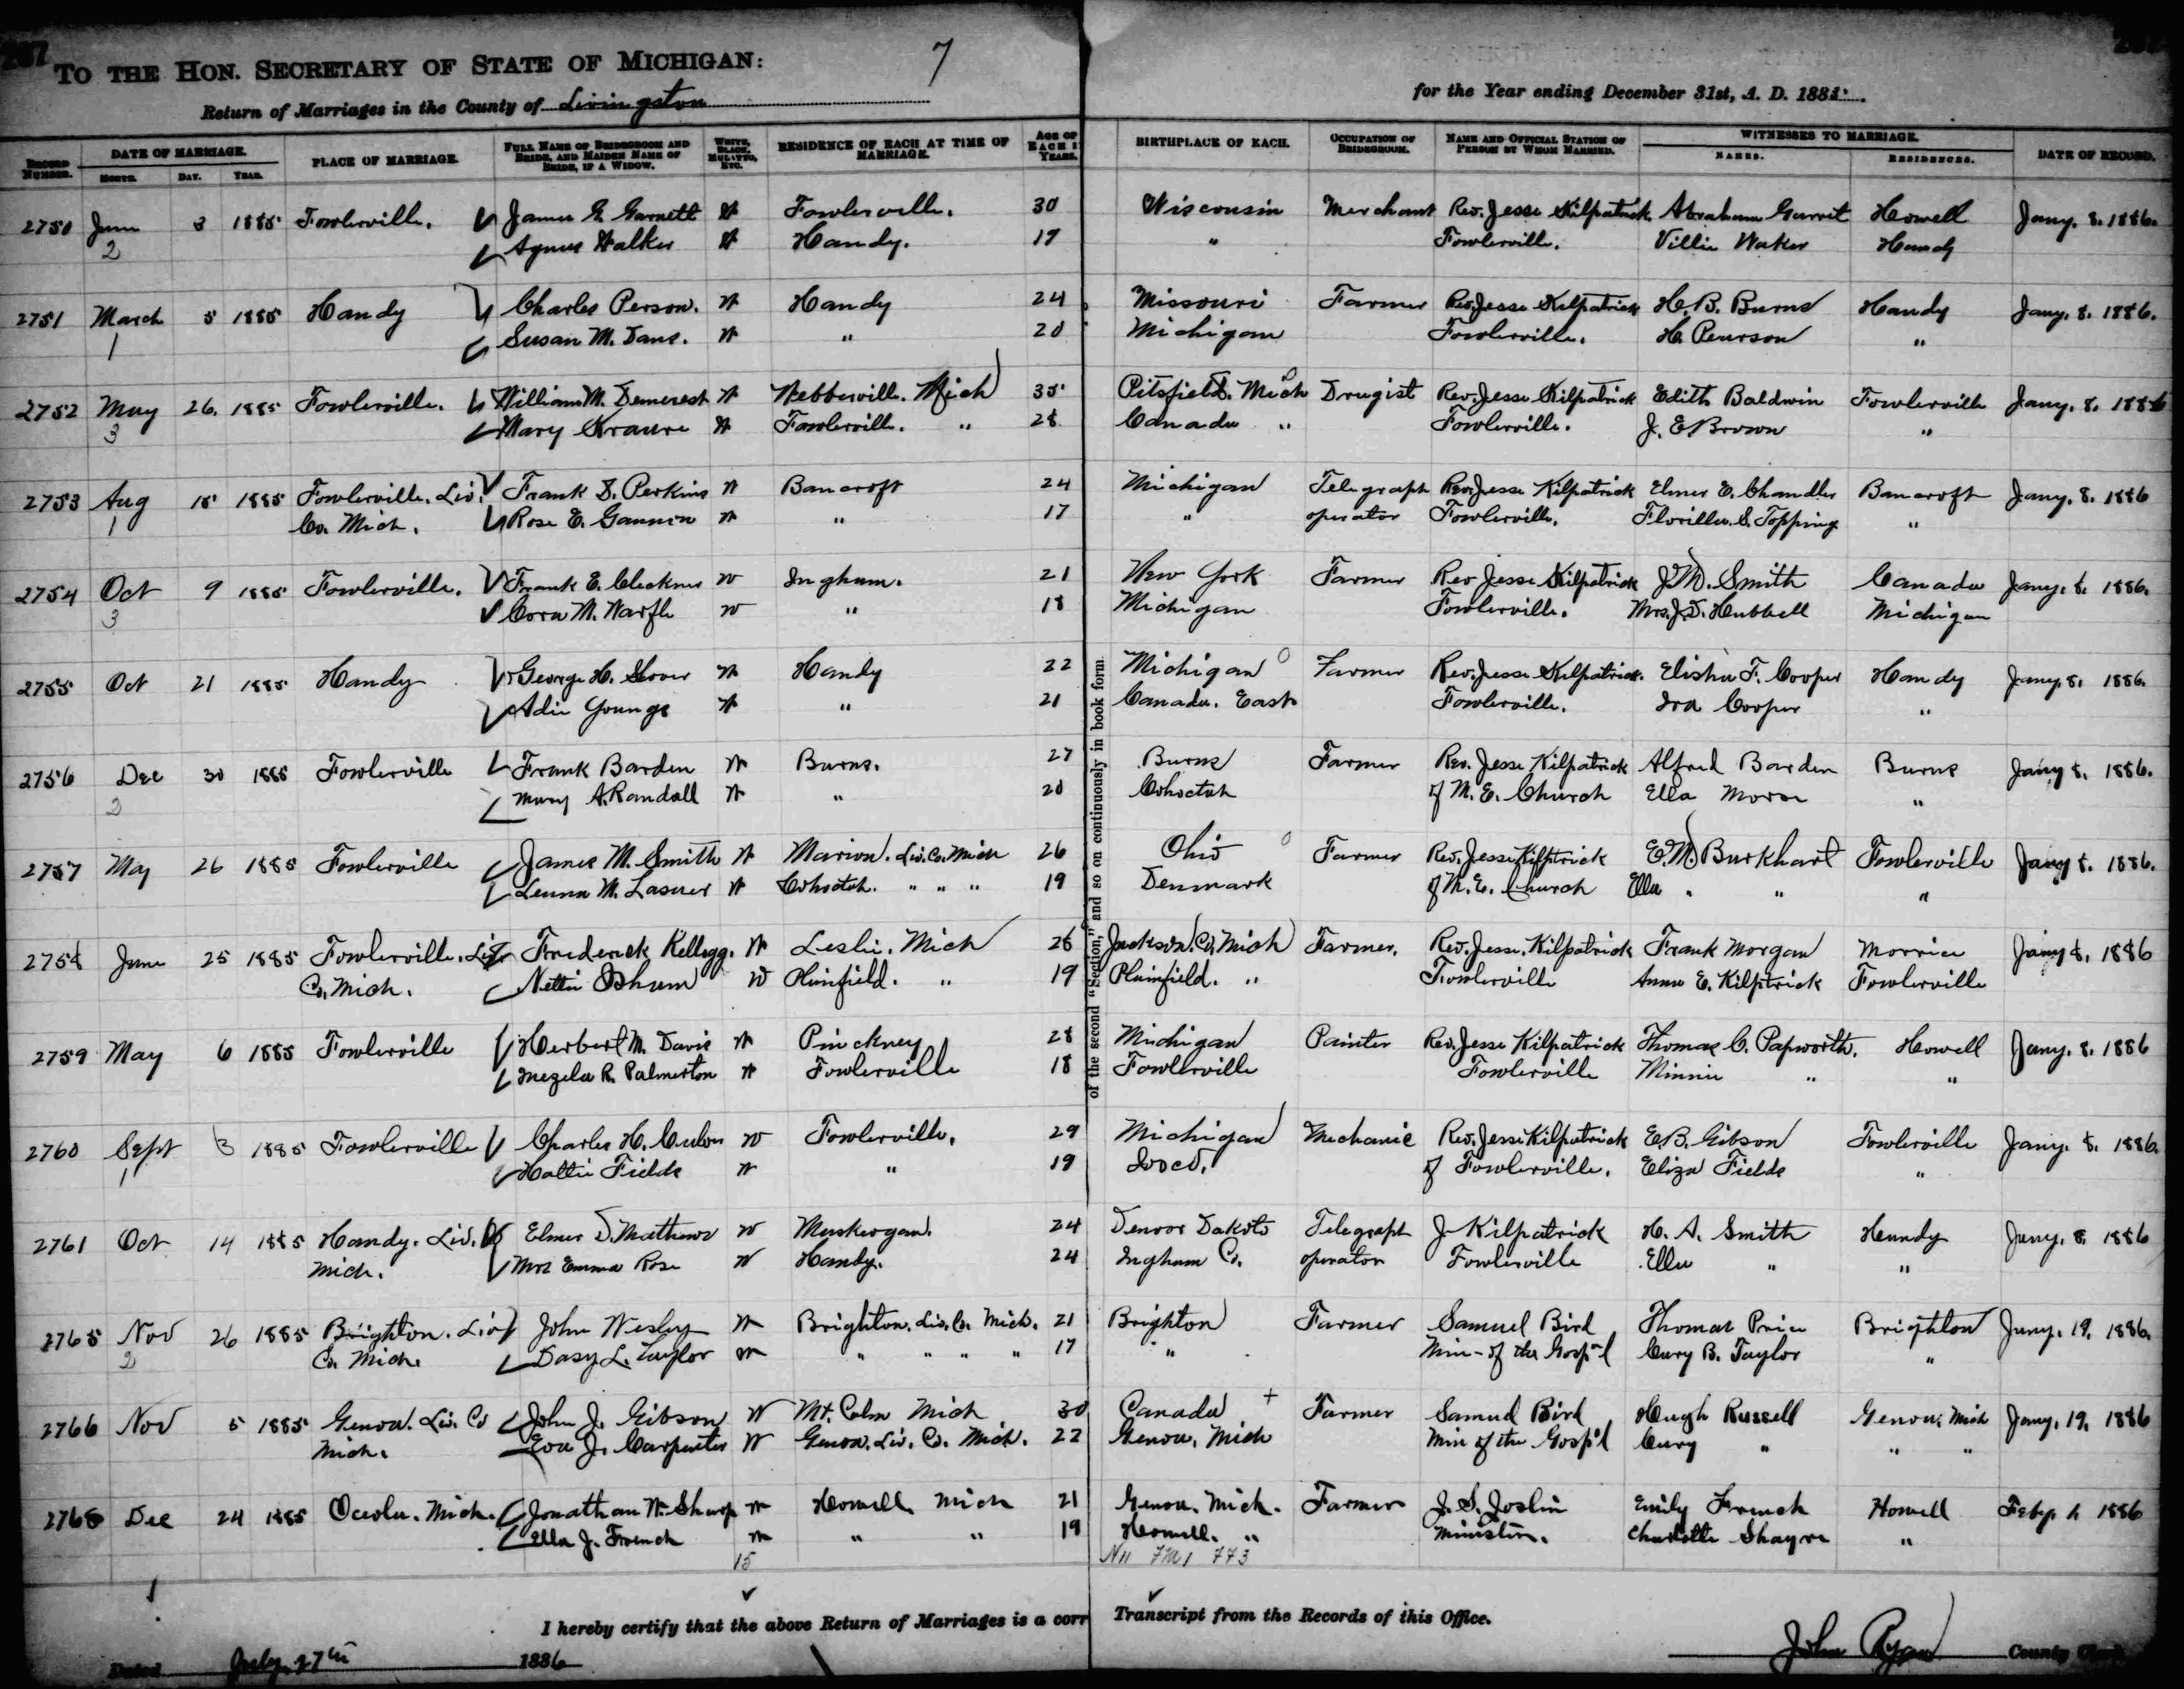 7
TO THE HON. SECRETARY OF STATE OF MICHIGAN:
Return of Marriages in the County of Livingston
for the Year ending December 31st, A. D. 1885.
RECORD NUMBER. DATE OF MARRIAGE. MONTH. DAY. YEAR. PLACE OF MARRIAGE. FULL NAME OF BRIDEGROOM AND BRIDE, AND MAIDEN NAME OF BRIDE, IF A WIDOW. WHITE, BLACK, MULATTO, ETC. RESIDENCE OF EACH AT TIME OF MARRIAGE. AGE OF EACH IN YEARS. BIRTHPLACE OF EACH. OCCUPATION OF BRIDEGROOM. NAME AND OFFICIAL STATION OF PERSON BY WHOM MARRIED. WITNESSES TO MARRIAGE. NAMES. RESIDENCES. DATE OF RECORD.
2750 June 3 1885 Fowlerville. James G. Garnett W Fowlerville. 30 Wisconsin Merchant Rev. Jesse Kilpatrick Abraham Garrit Howell Jany. 8. 1886.
2 Agnes Walker W Handy. 19 " Fowlerville. Villie Waker Handy
2751 March 5 1885 Handy Charles Person. W Handy 24 Missouri Farmer Rev. Jesse Kilpatrick H. B. Burns Handy Jany. 8. 1886.
1 Susan M. Dane. W " 20 Michigan Fowlerville. H. Pearson "
2752 May 26. 1885 Fowlerville. William M. Demerest W Webberville. Mich 35 Pitsfield. Mich Drugist Rev. Jesse Kilpatrick Edith Baldwin Fowlerville Jany. 8. 1886
3 Mary Krause W Fowlerville. " 28 Canada " Fowlerville. J. E. Brown "
2753 Aug 15 1885 Fowlerville. Liv. Frank S. Perkins W Bancroft 24 Michigan Telegraph Rev. Jesse Kilpatrick Elmer E. Chandler Bancroft Jany. 8. 1886
1 Co. Mich. Rose E. Gannon W " 17 " operator Fowlerville. Florilla. S. Topping "
2754 Oct 9 1885 Fowlerville. Frank E. Cleckner W Ingham. 21 New York Farmer Rev Jesse Kilpatrick J. M. Smith Canada Jany. 8. 1886.
3 Cora M. Warfle W " 18 Michigan Fowlerville. Mrs. J. D. Hubbell Michigan
2755 Oct 21 1885 Handy George H. Stover W Handy 22 Michigan Farmer Rev. Jesse Kilpatrick. Elisha F. Cooper Handy Jany. 8. 1886.
Adie Youngs W " 21 Canada. East Fowlerville. Ira Cooper "
2756 Dec 30 1885 Fowlerville Frank Barden W Burns. 27 Burns Farmer Rev. Jesse Kilpatrick Alfred Barden Burns Jany 8. 1886.
2 Mary A. Randall W " 20 Cohoctah of M. E. Church Ella Morse "
2757 May 26 1885 Fowlerville James M. Smith W Marion. Liv. Co. Mich 26 Ohio Farmer Rev. Jesse Kilptrick E. M. Burkhart Fowlerville Jany 8. 1886.
Lenna M. Lasurer W Cohoctah. " " " 19 Denmark of M. E. Church Ella " " "
2758 June 25 1885 Fowlerville. Liv Frederick Kellogg. W Leslie. Mich 26 Jackson Co. Mich Farmer. Rev. Jesse. Kilpatrick Frank Morgan Morrice Jany 8. 1886
Co. Mich. Nettie Isham W Plainfield. " 19 Plainfield. " Fowlerville Anna E. Kilptrick Fowlerville
2759 May 6 1885 Fowlerville Herbert M. Davis W Pinckney 28 Michigan Painter Rev. Jesse Kilpatrick Thomas C. Papworth. Howell Jany. 8. 1886
Inezela R. Palmerton W Fowlerville 18 Fowlerville Fowlerville Minnie " "
2760 Sept 3 1885 Fowlerville Charles H. Culon W Fowlerville. 29 Michigan Mechanic Rev. Jesse Kilpatrick E. B. Gibson Fowlerville Jany. 8. 1886.
1 Hattie Fields W " 19 Iosco. of Fowlerville. Eliza Fields "
2761 Oct 14 1885 Handy. Liv. Co Elmer D. Mathews W Muskegon. 24 Denvor Dakota Telegraph J Kilpatrick H. A. Smith Handy Jany. 8. 1886
Mich. Mrs Emma Rose W Handy. 24 Ingham Co. operator Fowlerville Ella " "
2765 Nov 26 1885 Brighton. Liv John Wesley W Brighton. Liv. Co. Mich. 21 Brighton Farmer Samuel Bird Thomas Price Brighton Jany. 19. 1886.
2 Co. Mich. Dasy L. Taylor W " " " " 17 " Min- of the Gospel Cary B. Taylor "
2766 Nov 5 1885 Genoa. Liv. Co John J. Gibson W Mt. Calm Mich 30 Canada + Farmer Samuel Bird Hugh Russell Genoa, Mich Jany. 19. 1886
Mich. Eva J. Carpenter W Genoa. Liv. Co. Mich. 22 Genoa, Mich Min of the Gospel Cary " " "
2768 Dec 24 1885 Oceola. Mich. Jonathan W. Sharp W Howell Mich 21 Genoa. Mich. Farmer J. S. Joslin Emily French Howell Feby. 1. 1886
Ella J. French W " " 19 Howell. " Minister. Charlotte Shayre "
15
of the second "Section," and so on continuously in book form
I hereby certify that the above Return of Marriages is a corr Transcript from the Records of this Office.
Dated July 27th 1886 John Ryan County Clerk